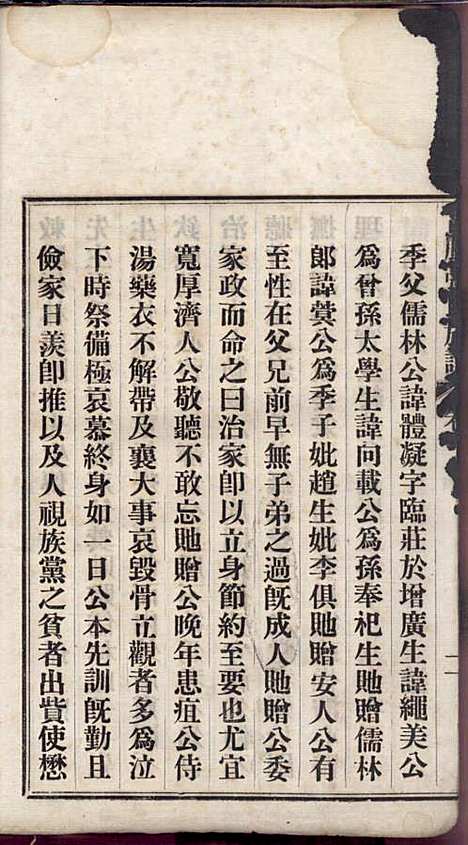 季父儒林公諱體凝字臨莊於增廣生諱繩美公
爲曾孫太學生諱向載公爲孫奉祀生貤贈儒林
郎諱蓂公爲季子妣趙生妣李俱貤贈安人公有
至性在父兄前早無子弟之過旣成人貤贈公委
家政而命之曰治家卽以立身節約至要也尤宜
寬厚濟人公敬聽不敢忘貤贈公晚年患疽公侍
湯藥衣不解帶及襄大事哀毀骨立觀者多爲泣
下時祭備極哀慕終身如一日公本先訓旣勤且
儉家日羨卽推以及人視族黨之貧者出貲使懋